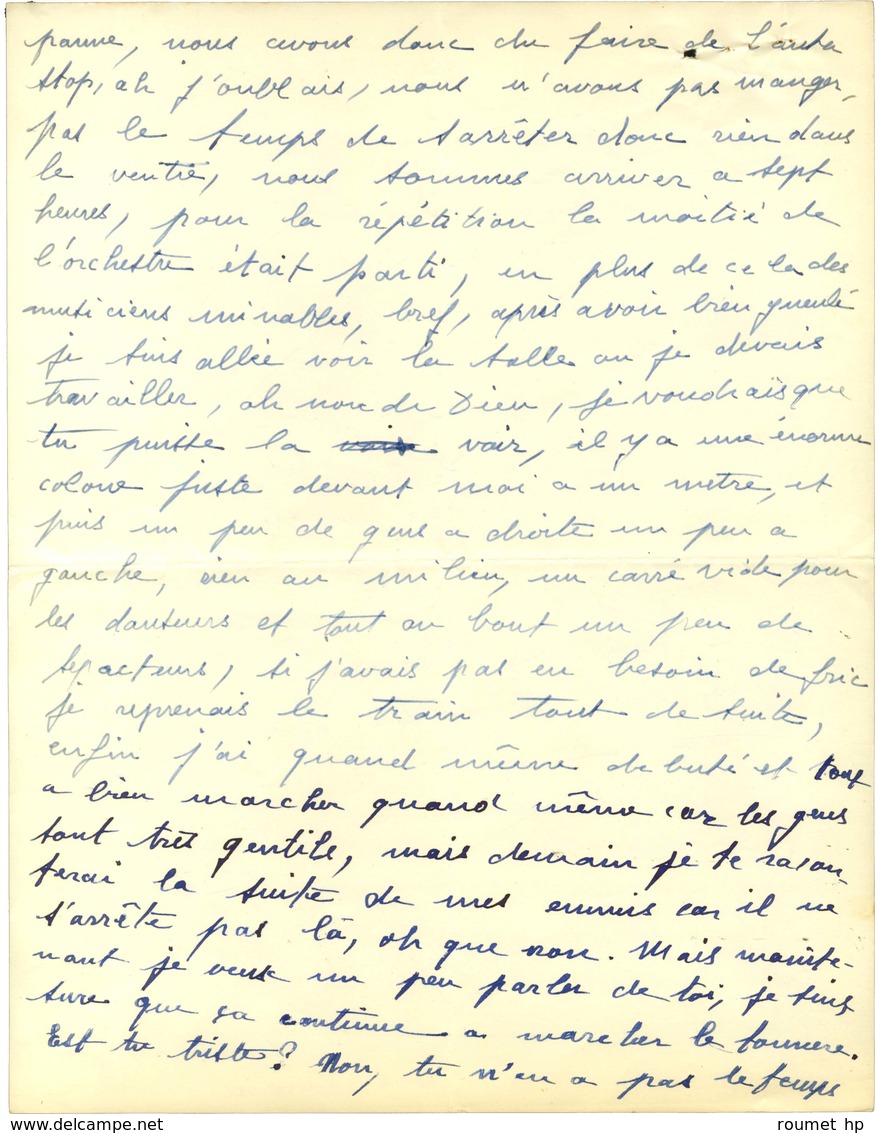 panne, nous avons donc du faire de l'auto
stop, ah j'oublais, nous n'avons pas manger,
pas le temps de s'arrêter donc rien dans
le ventre, nous sommes arriver a sept
heures, pour la répétition la moitié de
l'orchestre était parti, en plus de ce la des
musiciens minables, bref, après avoir bien gueulé
je suis allée voir la salle ou je devais
travailler, oh nom de Dieu, je voudrais que
tu puisse la voir, il y a une énorme
colone juste devant moi a un metre, et
puis un peu de gens a droite un peu a
gauche, rien au milieu, un carré vide pour
les danseurs et tout au bout un peu de
spacteurs, si j'avais pas eu besoin de fric
je reprenais le train tout de suite,
enfin j'ai quand même debuté et tout
a bien marcher quand même car les gens
sont très gentils, mais demain je te racon-
terai la suite de mes ennuis car il ne
s'arrête pas là, oh que non. Mais mainte-
nant je veux un peu parler de toi, je suis
sure que ça continue a marcher le tonnere.
Est tu triste? Non, tu n'en a pas le temps
roumet hp